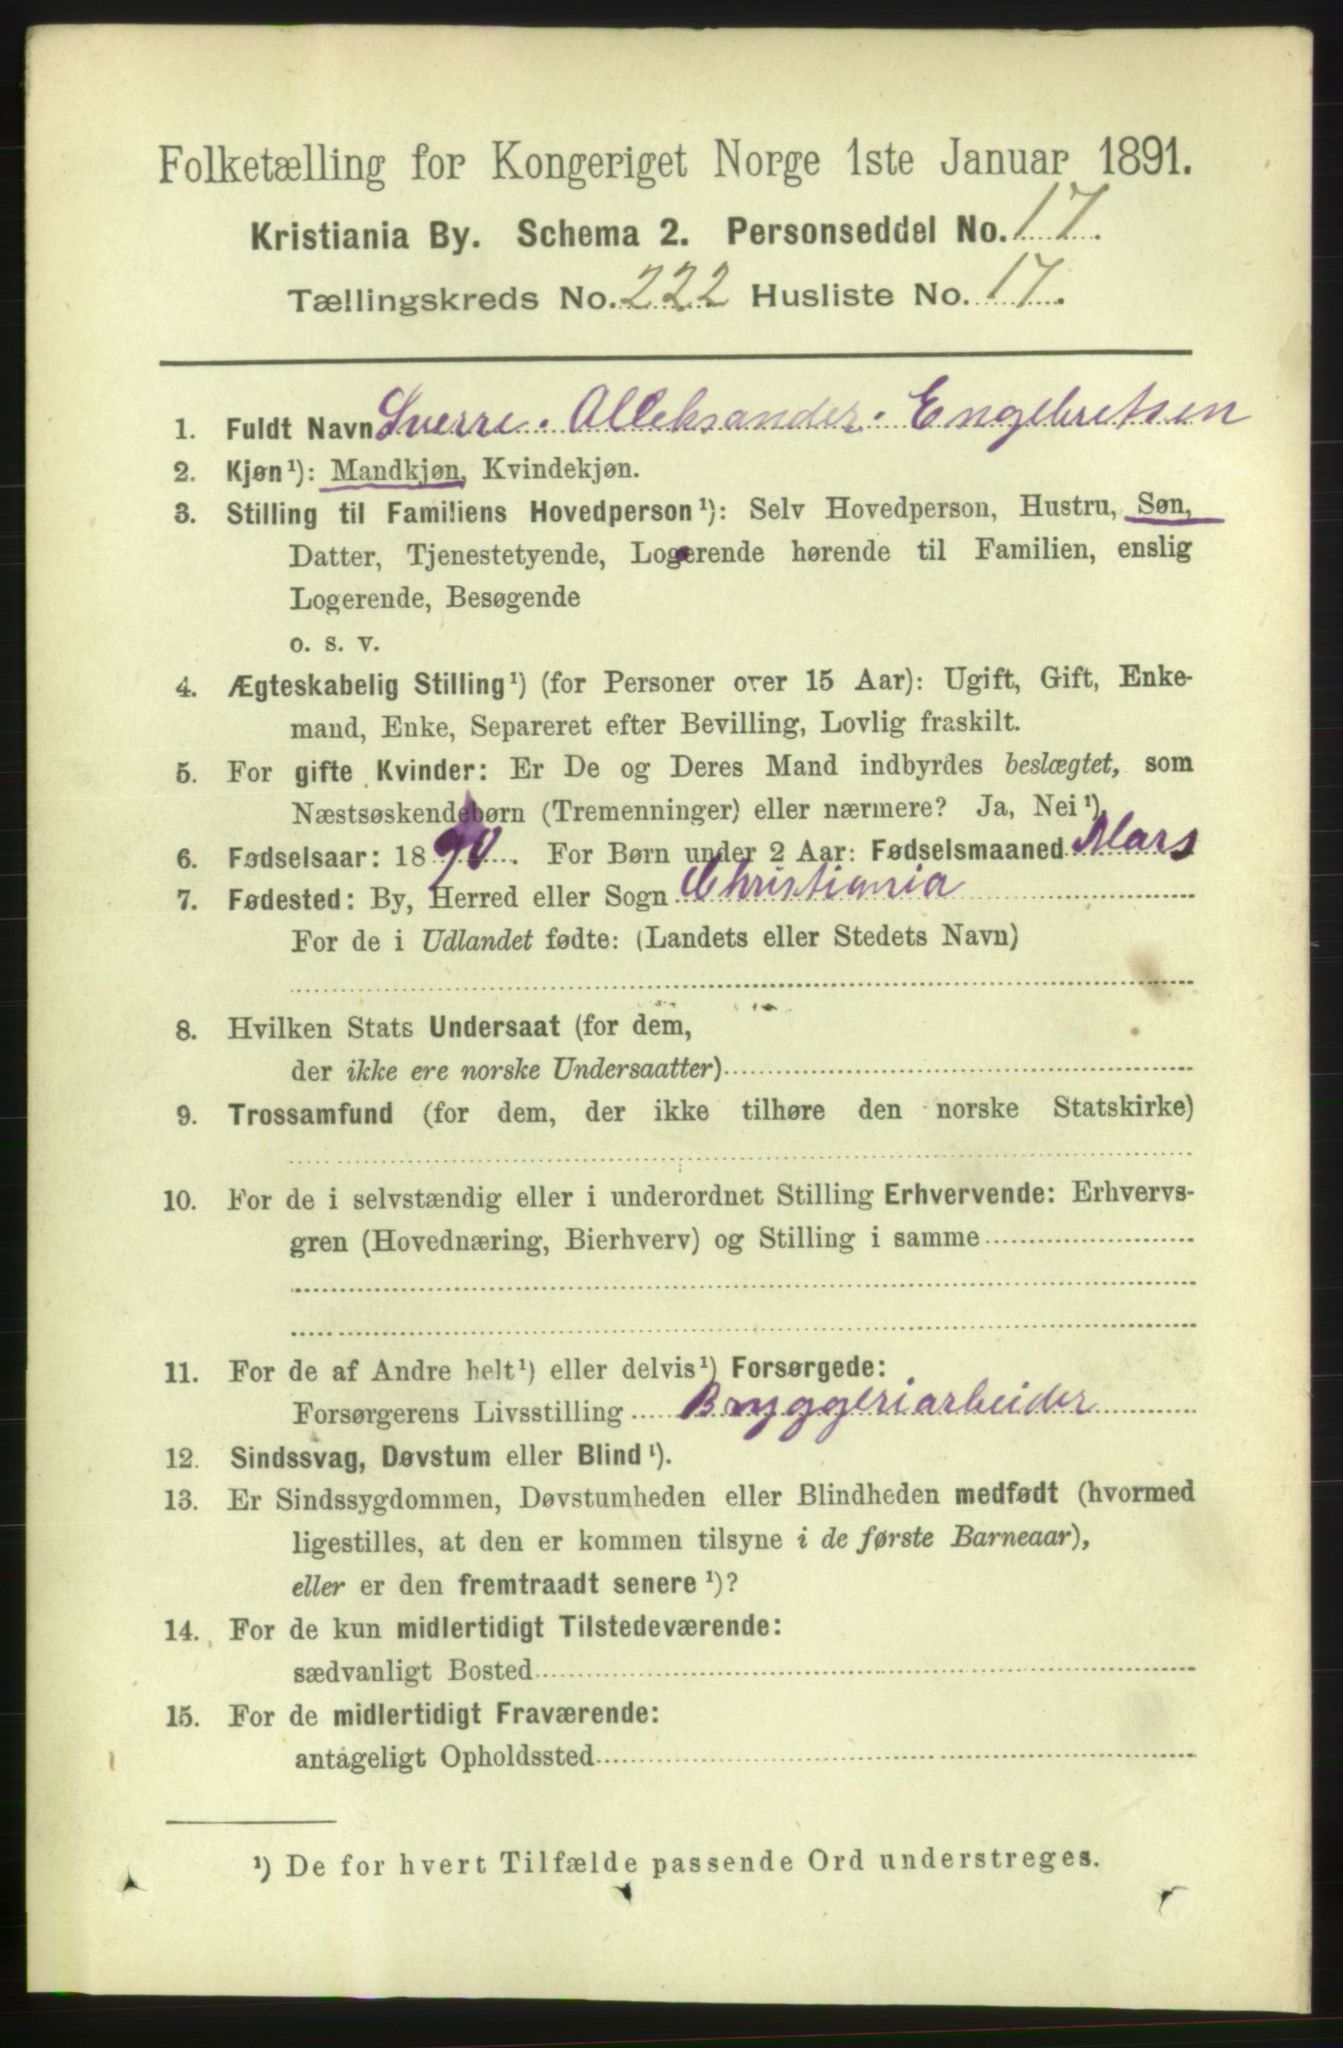 Folketælling for Kongeriget Norge 1ste Januar 1891.
Kristiania By. Schema 2. Personseddel No. 17.
Tællingskreds No. 222 Husliste No. 17.
1. Fuldt Navn Sverre. Alleksander. Engebretsen
2. Kjøn¹): Mandkjøn, Kvindekjøn.
3. Stilling til Familiens Hovedperson¹): Selv Hovedperson, Hustru, Søn,
Datter, Tjenestetyende, Logerende hørende til Familien, enslig
Logerende, Besøgende
o. s. v.
4. Ægteskabelig Stilling¹) (for Personer over 15 Aar): Ugift, Gift, Enke-
mand, Enke, Separeret efter Bevilling, Lovlig fraskilt.
5. For gifte Kvinder: Er De og Deres Mand indbyrdes beslægtet, som
Næstsøskendebørn (Tremenninger) eller nærmere? Ja, Nei¹).
6. Fødselsaar: 1890. For Børn under 2 Aar: Fødselsmaaned Mars
7. Fødested: By, Herred eller Sogn Christiania
For de i Udlandet fødte: (Landets eller Stedets Navn)
8. Hvilken Stats Undersaat (for dem,
der ikke ere norske Undersaatter)
9. Trossamfund (for dem, der ikke tilhøre den norske Statskirke)
10. For de i selvstændig eller i underordnet Stilling Erhvervende: Erhvervs-
gren (Hovednæring, Bierhverv) og Stilling i samme
11. For de af Andre helt¹) eller delvis¹) Forsørgede:
Forsørgerens Livsstilling Bryggeriarbeider
12. Sindssvag, Døvstum eller Blind¹).
13. Er Sindssygdommen, Døvstumheden eller Blindheden medfødt (hvormed
ligestilles, at den er kommen tilsyne i de første Barneaar),
eller er den fremtraadt senere¹)?
14. For de kun midlertidigt Tilstedeværende:
sædvanligt Bosted
15. For de midlertidigt Fraværende:
antageligt Opholdssted
¹) De for hvert Tilfælde passende Ord understreges.